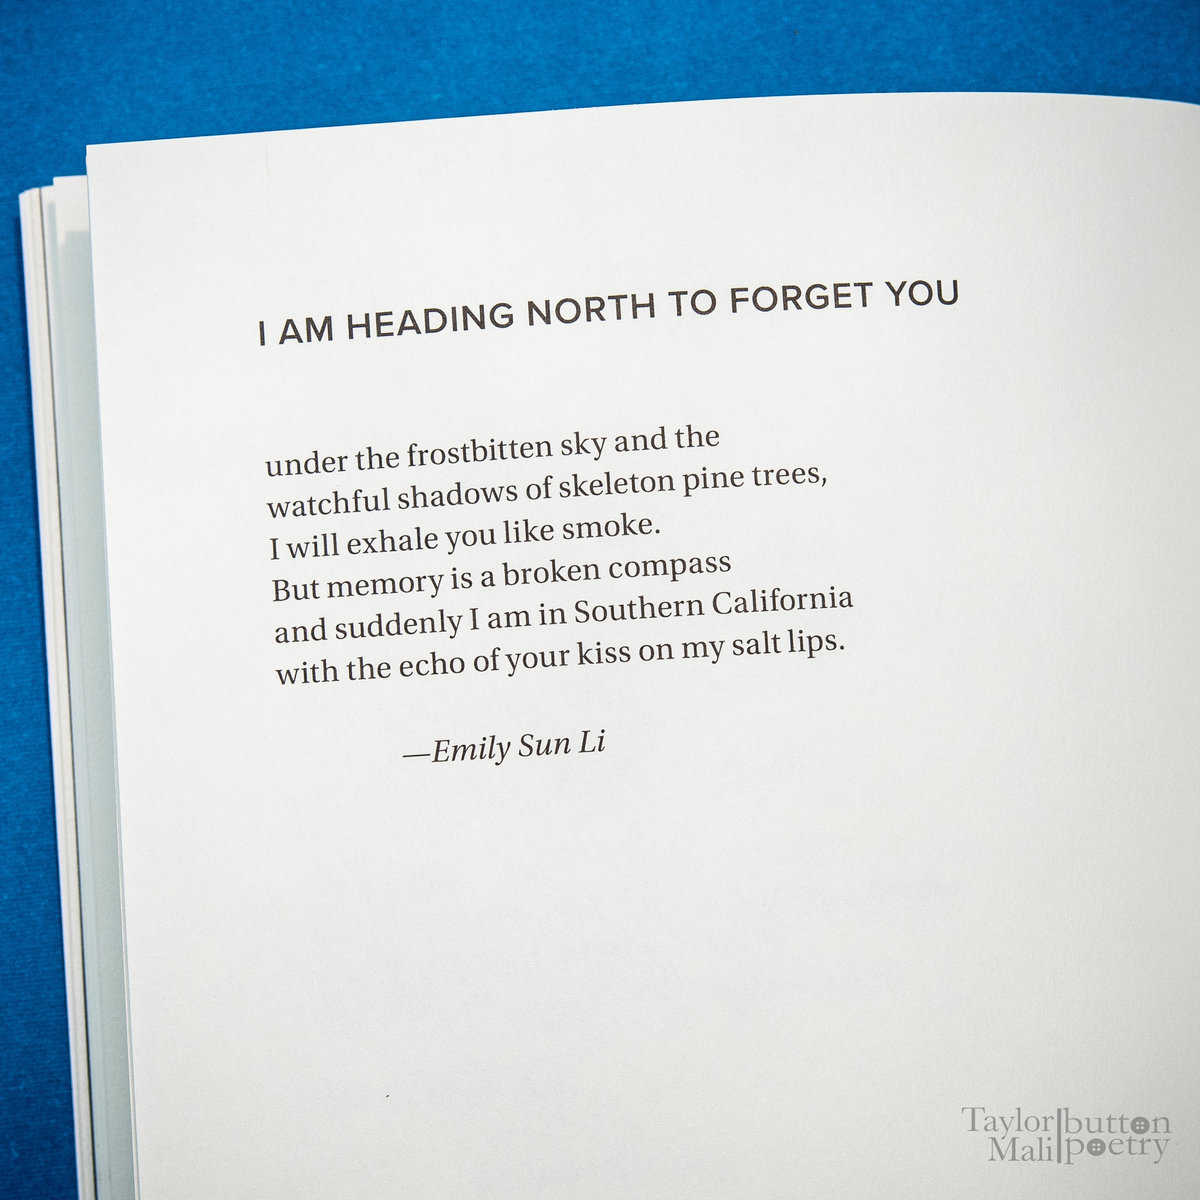 I AM HEADING NORTH TO FORGET YOU
under the frostbitten sky and the
watchful shadows of skeleton pine trees,
I will exhale you like smoke.
But memory is a broken compass
and suddenly I am in Southern California
with the echo of your kiss on my salt lips.
—Emily Sun Li
Taylor Mali
button poetry